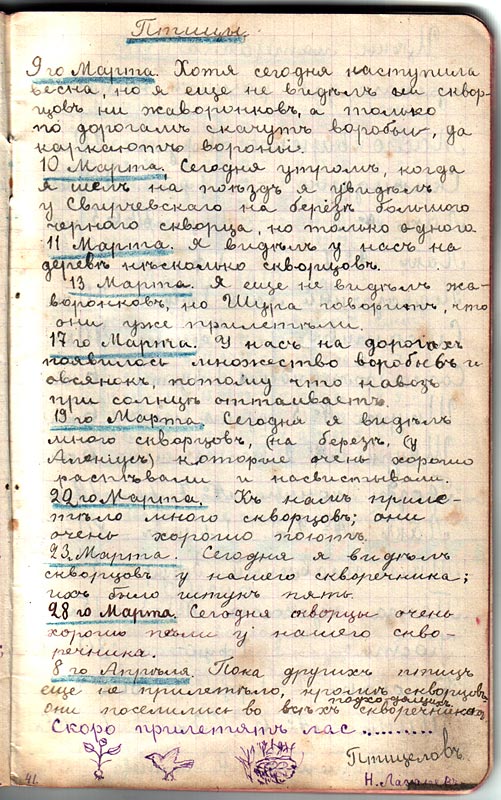 Птицы.
9го Марта. Хотя сегодня наступила
весна, но я еще не видѣлъ ни сквор-
цовъ ни жаворонковъ, а только
по дорогамъ скачутъ воробьи, да
каркаютъ вороны.
10 Марта. Сегодня утромъ, когда
я шелъ на поѣздъ я увидѣлъ
у Свирчевскаго на берёзѣ большого
черного скворца, но только одного
11 Марта. Я видѣлъ у насъ на
деревѣ нѣсколько скворцовъ.
13 Марта. Я еще не видѣлъ жа-
воронковъ, но Шура говоритъ, что
они уже прилетѣли.
17 го Марта. У насъ на дорогахъ
появилось множество воробьевъ и
овсянокъ, потому что навозъ
при солнцѣ оттаиваетъ.
19 го Марта. Сегодня я видѣлъ
много скворцовъ, (на березѣ, (у
Аленіусъ) которые очень хорошо
распѣвали и насвистывали.
22 го Марта. Къ намъ приле-
тѣло много скворцовъ; они
очень хорошо поютъ.
23 Марта. Сегодня я видѣлъ
скворцовъ у нашего скворечника;
ихъ было штукъ пять.
28 го Марта. Сегодня скворцы очень
хорошо пѣли у нашего скво-
речника.
8 го Апрѣля Пока другихъ птицъ
еще не прилетѣло, кромѣ скворцовъ
они поселились во всѣхъ подходящихъ скворечникахъ
Скоро прилетятъ
Птицеловъ.
41.
Н. Лазаревъ